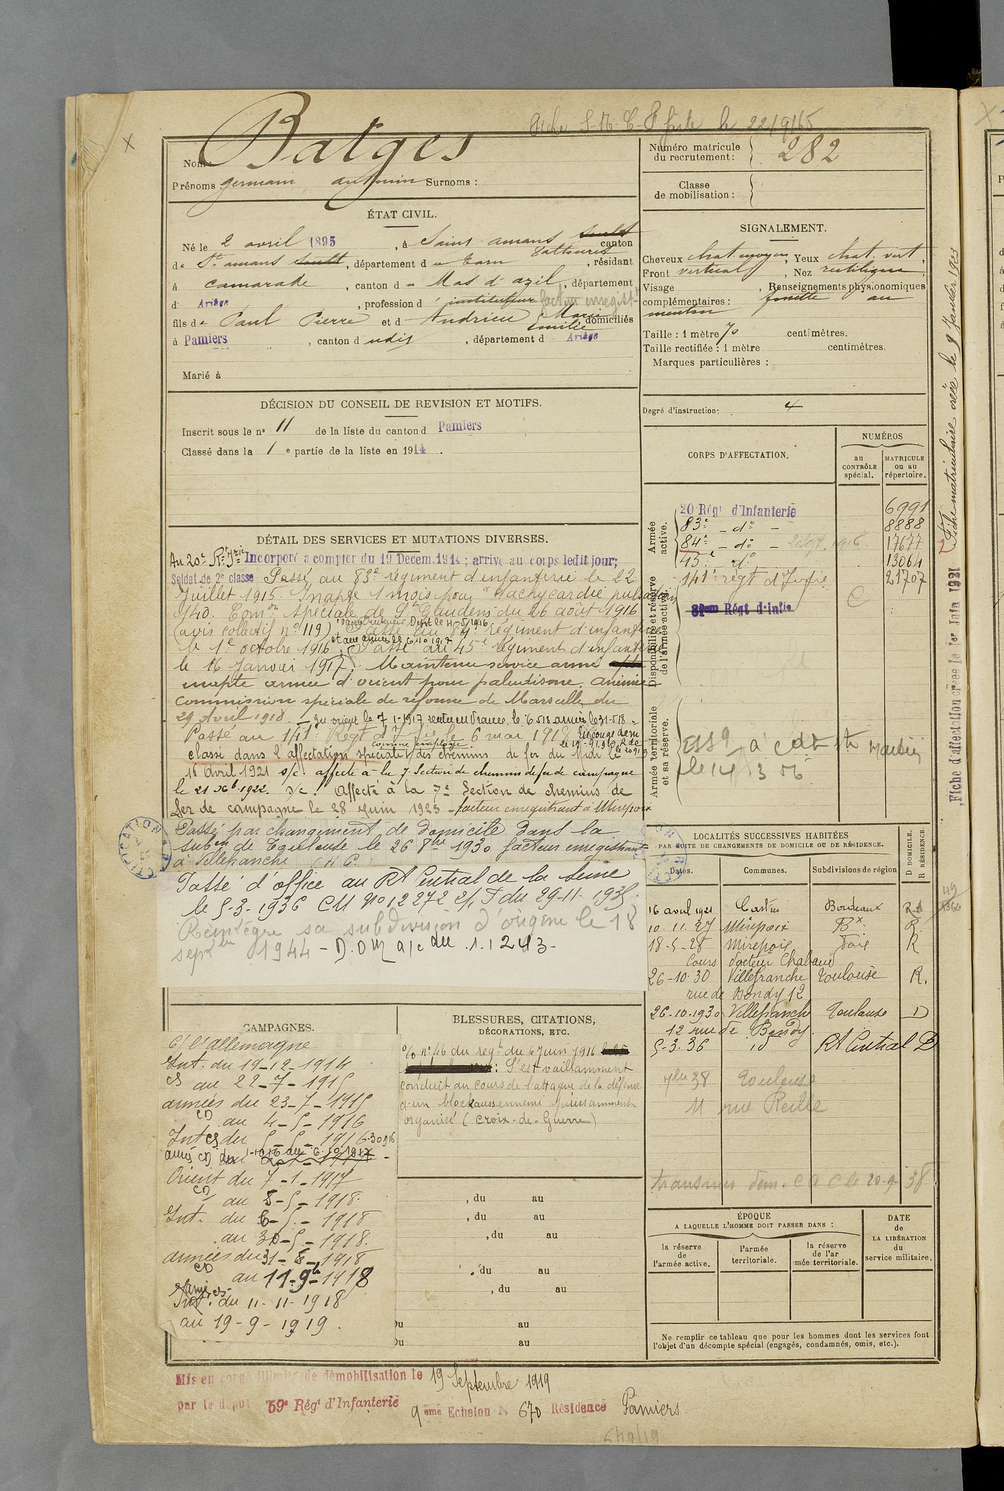 Fiche S.M. C. F. faite le 22/9/15
Nom : Balges
Prénoms germain antonin Surnoms :
Numéro matricule du recrutement : 282
Classe de mobilisation :
ÉTAT CIVIL.
Né le 2 avril 1895, à Saint amans canton
de St amans, département de Tarn, résidant
à camarade, canton de Mas d'azil, département
d Ariège, profession d' instituteur facteur enregist
fils de Paul Pierre et d Andrieu Marie Emilie, domiciliés
à Pamiers, canton d udit, département d Ariège
Marié à
SIGNALEMENT.
Cheveux chat moyen, Yeux chat. vert,
Front vertical, Nez rectiligne
Visage, Renseignements physionomiques
complémentaires : fossette au
menton
Taille : 1 mètre 70 centimètres.
Taille rectifiée : 1 mètre centimètres.
Marques particulières :
Degré d'instruction : 4
DÉCISION DU CONSEIL DE REVISION ET MOTIFS.
Inscrit sous le n° 11 de la liste du canton d Pamiers
Classé dans la 1 e partie de la liste en 1914.
CORPS D'AFFECTATION.
NUMÉROS
au CONTRÔLE spécial.
MATRICULE ou au répertoire.
Armée active.
20 Régt d'Infanterie 6991
83e - do - 8888
84e - do - 17677
45e do 13064
141e regt d'Infie 21707
Disponibilité et réserve de l'armée active.
Régt d'Infie
C
Armée territoriale et sa réserve.
DÉTAIL DES SERVICES ET MUTATIONS DIVERSES.
Au 20e Rt Irie Incorporé à compter du 19 Décem. 1914 ; arrivé au corps ledit jour;
Soldat de 2e classe Passé au 83e régiment d'infanterie le 22
Juillet 1915. Inapte 1 mois pour "tachycardie pulsation
140. Comon spéciale de St Gaudens du 26 août 1916
(avis collectif n° 119) Passé au 84e régiment d'infanterie
le 1e octobre 1916. Passé au 45e régiment d'infanterie
le 16 Janvier 1917. Maintenu service armé
inapte armée d'orient pour paludisme, anémie
commission spéciale de réforme de Marseille du
29 Avril 1918. En orient le 7-1-1917, rentré en France le 6 5 18
Passé au 141e Régt d'Irie le 6 mai 1918
classé dans l'affectation spéciale des chemins de fer du Midi le
16 Avril 1921 s/c. affecté à la 7e Section de chemins de fer de campagne
le 21 Xbre 1922. s/c. Affecté à la 7e Section de chemins de
fer de campagne le 28 Juin 1923 - facteur enregistrant à Mirepoix
Passé par changement de Domicile dans la
Subon de Toulouse le 26 8bre 1930 facteur enregistrant
à Villefranche (H G)
Passé d'office au Rt Central de la Seine
le 5-3-1936 CM N° 12272 2/1 T du 29-11-1935
Réintègre sa subdivision d'origine le 18
sepbre 1944 - D.O.M. a/c du 1.1 2 43-
LOCALITÉS SUCCESSIVES HABITÉES
PAR SUITE DE CHANGEMENTS DE DOMICILE OU DE RÉSIDENCE.
Dates. Communes. Subdivisions de région D DOMICILE. R RÉSIDENCE.
16 avril 1921 Castres Bordeaux R
10 11. 27 Mirepoix Bx R
18-5-28 Mirepoix Foix R
Cours Docteur Chabaud
26-10-30 Villefranche Toulouse R.
rue de Bondy 12
26.10.1930 Villefranche Toulouse D
12 rue de Bondy.
5.3.36 id Rt Central D
38 Toulouse
11 rue Reille
20-9-38
CAMPAGNES.
C/ l'allemagne
Int. du 19-12-1914
au 22-7-1915
armées du 23-7-1915
au 4-5-1916
Int du 5-5-1916
Orient du 7-1-1917
au 5-5-1918.
Int. du 6-5-1918
au 30-5-1918.
armées du 31-5-1918
au 11-9b-1918
Int. du 11-11-1918
au 19-9-1919.
BLESSURES, CITATIONS,
DÉCORATIONS, ETC.
O/o n° 46 du regt du 6 Juin 1916
: S'est vaillamment
conduit au cours de l'attaque de la défense
d'un blockaus ennemi puissamment
organisé (Croix-de-Guerre)
, du au
, du au
, du au
, du au
, du au
Du au
Du au
ÉPOQUE
A LAQUELLE L'HOMME DOIT PASSER DANS :
la réserve de l'armée active.
l'armée territoriale.
la réserve de l'armée territoriale.
DATE de LA LIBÉRATION du service militaire.
Ne remplir ce tableau que pour les hommes dont les services font
l'objet d'un décompte spécial (engagés, condamnés, omis, etc.).
Mis en congé illimité de démobilisation le 19 Septembre 1919
par le dépôt 59e Régt d'Infanterie 9ème Echelon N° 670 Résidence Pamiers
Fiche matriculaire créée le 9 Janvier 1923
Fiche d'affectation créée le 1er Juin 1921